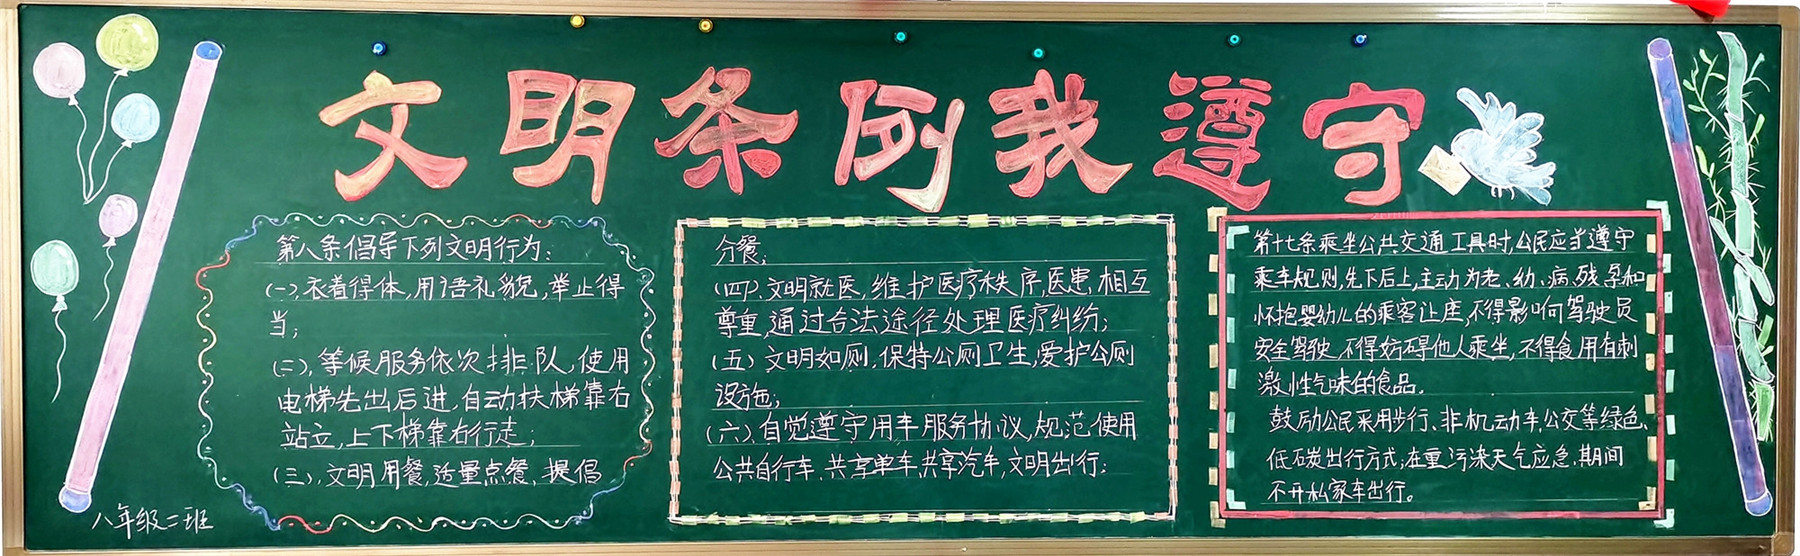 文明条例我遵守
第八条倡导下列文明行为:
(一)、衣着得体,用语礼貌,举止得
当;
(二),等候服务依次排队,使用
电梯先出后进,自动扶梯靠右
站立,上下梯靠右行走;
(三),文明用餐,适量点餐,提倡
分餐;
(四)、文明就医,维护医疗秩序,医患相互
尊重,通过合法途径处理医疗纠纷;
(五)文明如厕,保持公厕卫生,爱护公厕
设施;
(六)、自觉遵守用车服务协议,规范使用
公共自行车、共享单车,共享汽车,文明出行;
第十七条乘坐公共交通工具时,公民应当遵守
乘车规则,先下后上,主动为老、幼、病、残、孕和
怀抱婴幼儿的乘客让座,不得影响驾驶员
安全驾驶,不得妨碍他人乘坐,不得食用有刺
激性气味的食品。
鼓励公民采用步行、非机动车、公交等绿色、
低碳出行方式,在重污染天气应急期间
不开私家车出行。
八年级二班